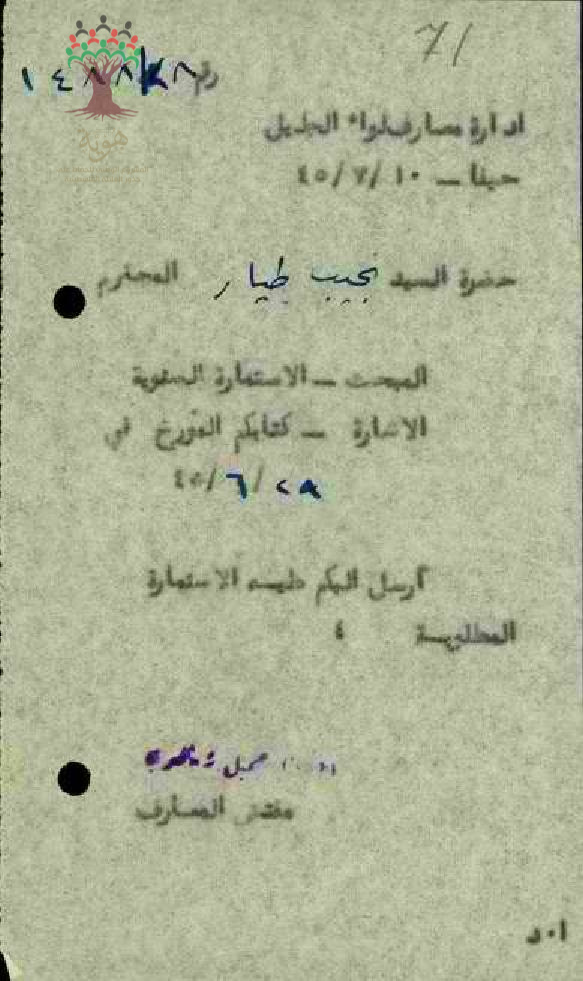 71
رقم ١٤٨٨/٢٨
ادارة معارف لواء الجليل
حيفا — ١٠/٧/٤٥
حضرة السيد نجيب طيار المحترم
المبحث — الاستمارة السنوية
الاشارة — كتابكم المؤرخ في
٢٩/٦/٤٥
أرسل اليكم طيه الاستمارة
المطلوبة ٤
جميل
مفتش المعارف
ا٠د
هوية